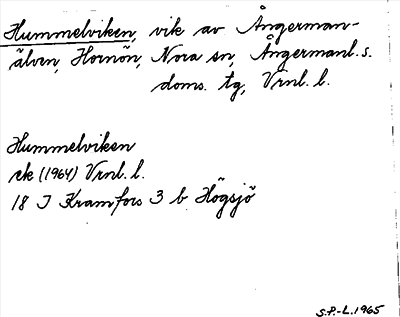 Hummelviken, vik av Ångerman-
älven, Hornön, Nora sn, Ångermanl. s.
doms. tg, Vrnl. l.
Hummelviken
ek (1964) Vrnl. l.
18 J Kramfors 3 b Högsjö
S.P.-L. 1965